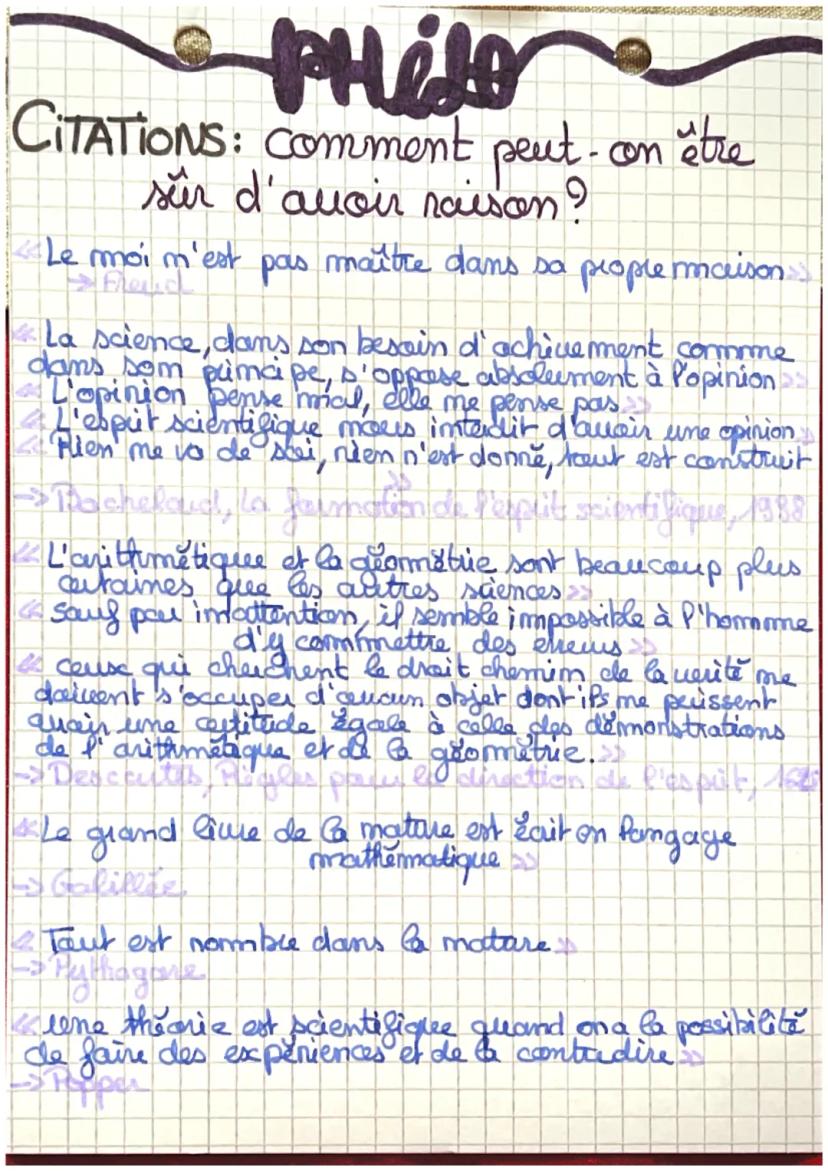 PHilo
CiTATiONS: comment peut-on être
sûr d'avoir raison?
« Le moi n'est pas maître dans sa propre maison »
→ Freud
« La science, dans son besoin d'achèvement comme
dans son principe, s'oppose absolument à l'opinion »
« L'opinion pense mal, elle ne pense pas »
« L'esprit scientifique nous interdit d'avoir une opinion »
« Rien ne va de soi, rien n'est donné, tout est construit
»
→ Bachelard, la formation de l'esprit scientifique,
« L'arithmétique et la géométrie sont beaucoup plus
certaines que les autres sciences »
« sauf par inattention, il semble impossible à l'homme
d'y commettre des erreurs »
« ceux qui cherchent le droit chemin de la vérité ne
doivent s'occuper d'aucun objet dont ils ne puissent
avoir une certitude égale à celle des démonstrations
de l'arithmétique et de la géométrie. »
→ Descartes, Règles pour la direction de l'esprit,
« Le grand livre de la nature est écrit en langage
mathématique »
→ Galillée
« Tout est nombre dans la nature »
→ Pythagore
« une théorie est scientifique quand on a la possibilité
de faire des expériences et de la contredire »
→ Popper